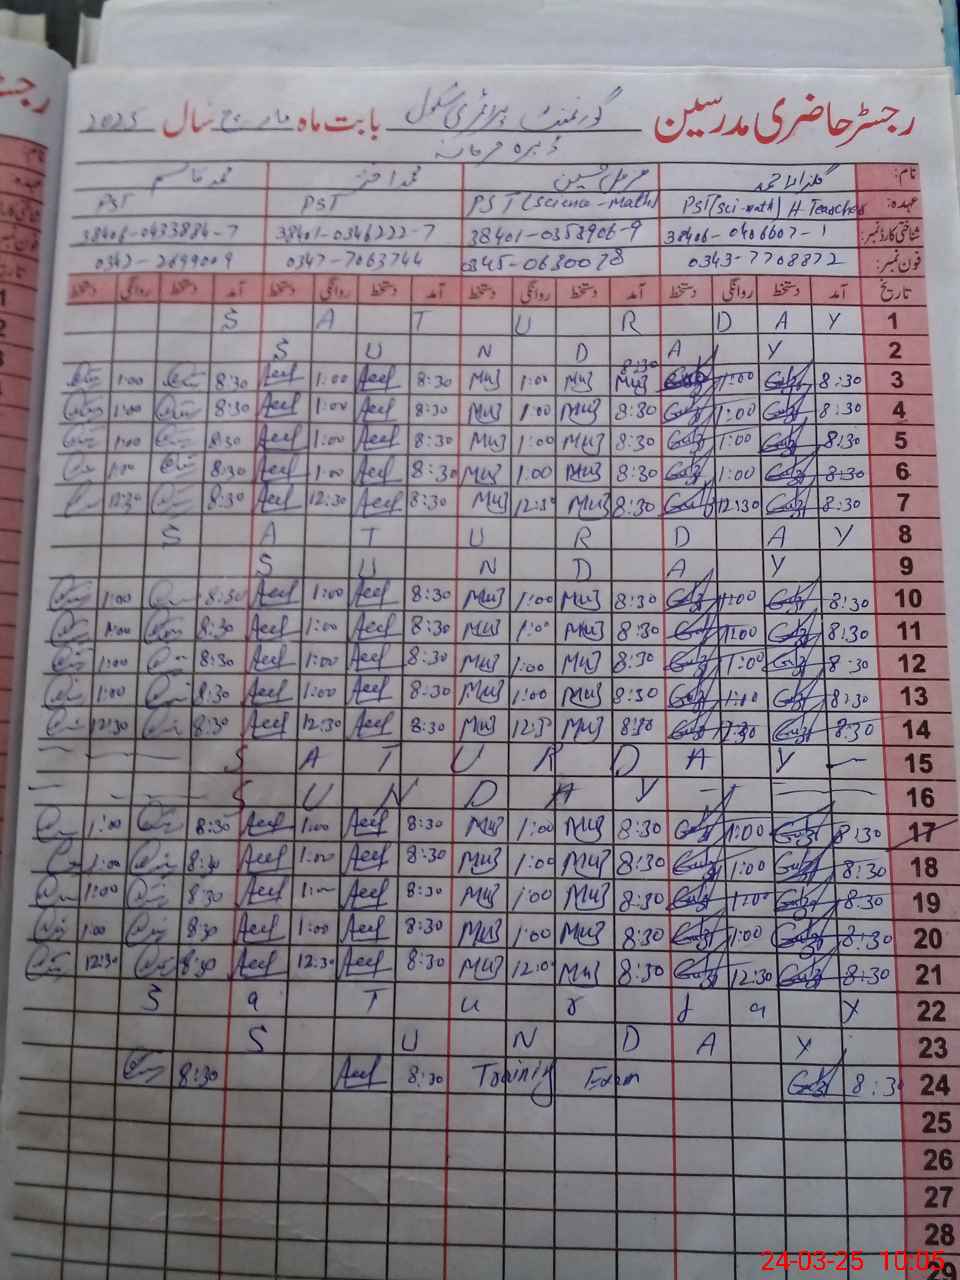 رجسٹر حاضری مدرسین گورنمنٹ پرائمری سکول بابت ماہ مارچ سال 2025
ڈیرہ
نام: گلزار احمد حسین محمد اختر محمد قاسم
عہدہ: PST(Sci-math) H-Teacher PST (Science-Math) PST PST
شناختی کارڈ نمبر: 38406-0406607-1 38401-0358906-9 38401-0346222-7 38406-0433884-7
فون نمبر: 0343-7708872 0345-0630078 0347-7063744 0342-2699009
تاریخ آمد دستخط روانگی دستخط آمد دستخط روانگی دستخط آمد دستخط روانگی دستخط آمد دستخط روانگی دستخط
S A T U R D A Y 1
S U N D A Y 2
1:00 8:30 Aeef 1:00 Aeef 8:30 MuJ 1:00 MuJ 8:30 MuJ Gulz 1:00 Gulz 8:30 3
1:00 8:30 Aeef 1:00 Aeef 8:30 MuJ 1:00 MuJ 8:30 Gulz 1:00 Gulz 8:30 4
1:00 8:30 Aeef 1:00 Aeef 8:30 MuJ 1:00 MuJ 8:30 Gulz 1:00 Gulz 8:30 5
1:00 8:30 Aeef 1:00 Aeef 8:30 MuJ 1:00 MuJ 8:30 Gulz 1:00 Gulz 8:30 6
12:30 8:30 Aeef 12:30 Aeef 8:30 MuJ 12:30 MuJ 8:30 Gulz 12:30 Gulz 8:30 7
S A T U R D A Y 8
S U N D A Y 9
1:00 8:30 Aeef 1:00 Aeef 8:30 MuJ 1:00 MuJ 8:30 Gulz 1:00 Gulz 8:30 10
1:00 8:30 Aeef 1:00 Aeef 8:30 MuJ 1:00 MuJ 8:30 Gulz 1:00 Gulz 8:30 11
1:00 8:30 Aeef 1:00 Aeef 8:30 MuJ 1:00 MuJ 8:30 Gulz 1:00 Gulz 8:30 12
1:00 8:30 Aeef 1:00 Aeef 8:30 MuJ 1:00 MuJ 8:30 Gulz 1:00 Gulz 8:30 13
12:30 8:30 Aeef 12:30 Aeef 8:30 MuJ 12:30 MuJ 8:30 Gulz 12:30 Gulz 8:30 14
S A T U R D A Y 15
S U N D A Y 16
1:00 8:30 Aeef 1:00 Aeef 8:30 MuJ 1:00 MuJ 8:30 Gulz 1:00 Gulz 8:30 17
1:00 8:30 Aeef 1:00 Aeef 8:30 MuJ 1:00 MuJ 8:30 Gulz 1:00 Gulz 8:30 18
1:00 8:30 Aeef 1:00 Aeef 8:30 MuJ 1:00 MuJ 8:30 Gulz 1:00 Gulz 8:30 19
1:00 8:30 Aeef 1:00 Aeef 8:30 MuJ 1:00 MuJ 8:30 Gulz 1:00 Gulz 8:30 20
12:30 8:30 Aeef 12:30 Aeef 8:30 MuJ 12:0 MuJ 8:30 Gulz 12:30 Gulz 8:30 21
S a T u r d a y 22
S U N D A Y 23
8:30 Aeef 8:30 Training Exam Gulz 8:30 24
25
26
27
28
29
24-03-25 10:05